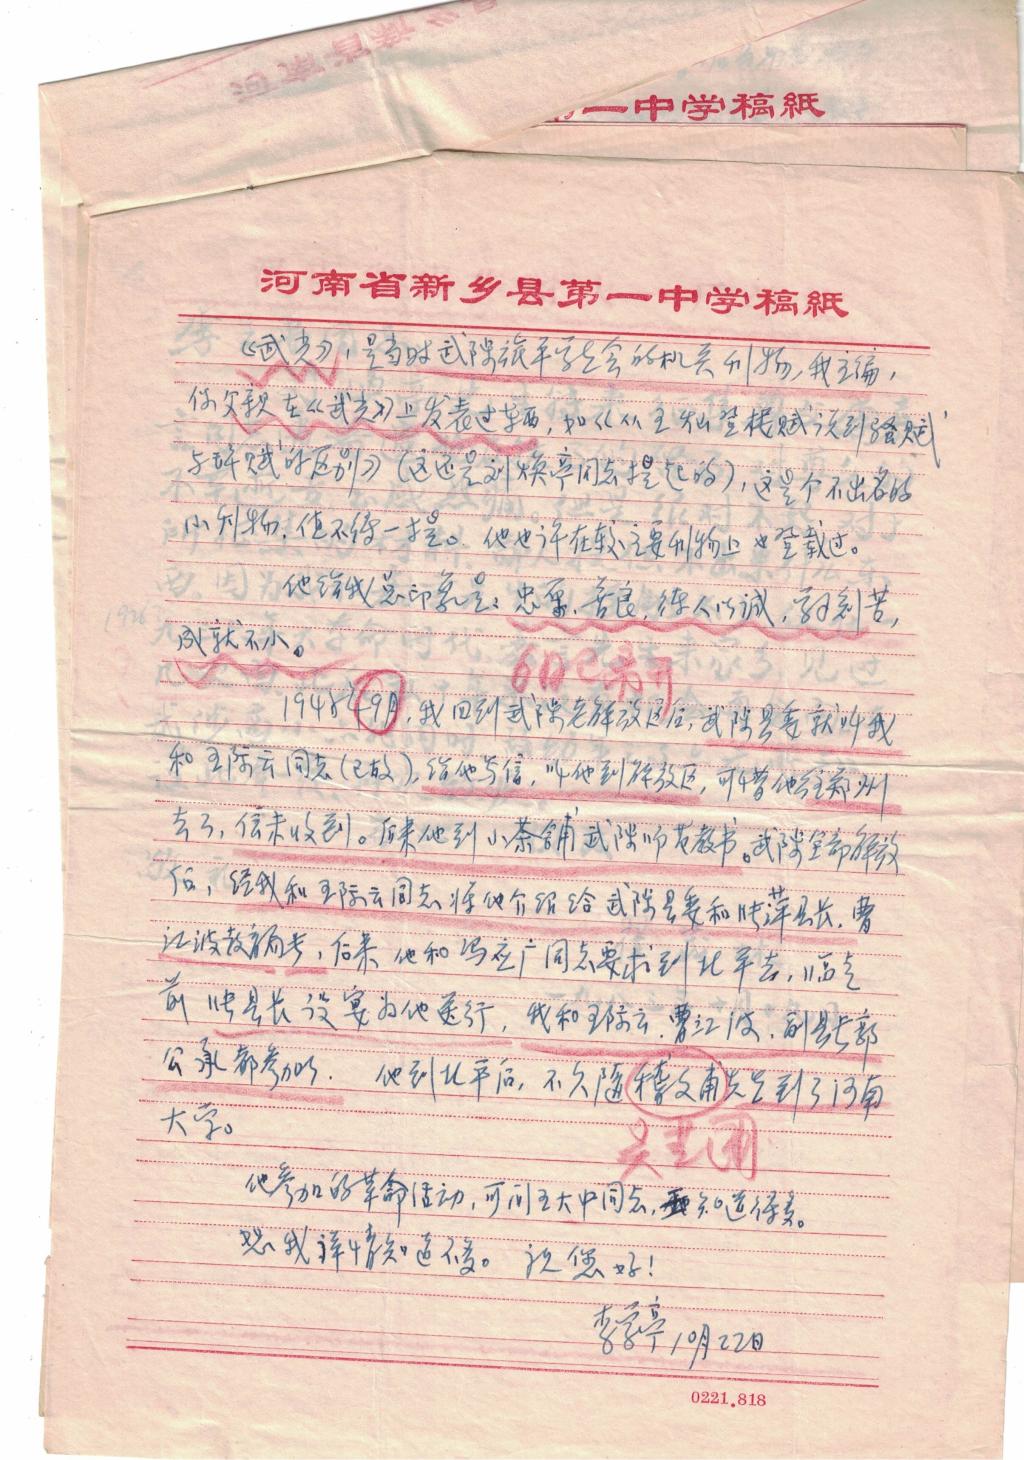 第一中学稿紙
河南省新乡县第一中学稿紙
《武光》，是当时武陟旅平学生会的机关刊物，我主编，
你父亲在《武光》上发表过东西，如《从王粲登楼赋谈到骚赋
与辞赋的区别》（这还是刘焕亭同志提起的），这是个不出名的
小刊物，值不得一提。他也许在较主要刊物上也登载过。
他给我总印象是：忠厚，善良，待人以诚，学习刻苦，
成就不小。
6日已离开
1948年9月，我回到武陟老解放区后，武陟县委就叫我
和王际云同志（已故），给他写信，叫他到解放区，可惜他往郑州
去了，信未收到。后来他到小茶铺武陟师范教书。武陟全部解放
后，经我和王际云同志将他介绍给武陟县委和张萍县长，曹
江波教育局长，后来他和冯在广同志要求到北平去，临走
前张县长设宴为他送行，我和王际云，曹江波，副县长郭
公承都参加。他到北平后，不久随嵇文甫先生到了河南
大学。
他参加的革命活动，可问王大中同志，知道得多。
恕我详情知道不多。祝您好！
李学亭 10月22日
0221.818